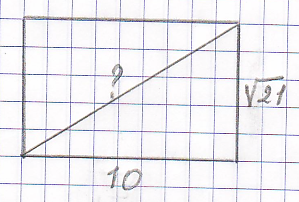 ?
√21
10